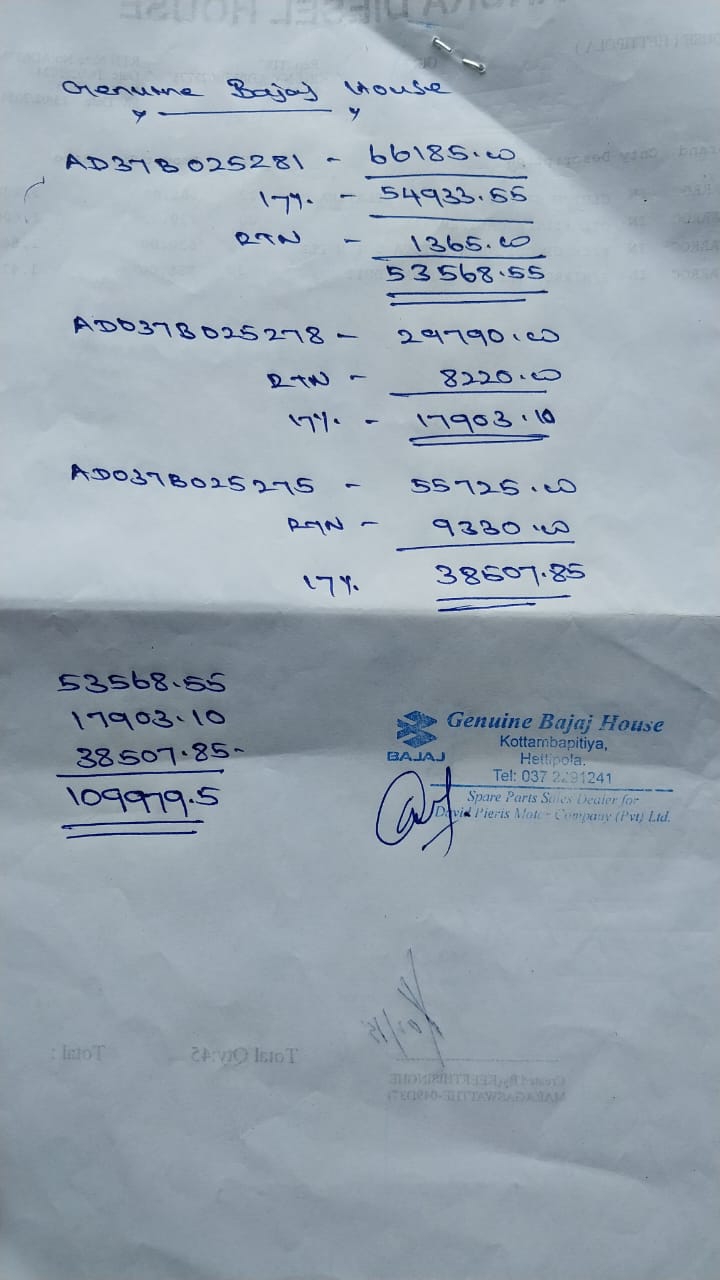 Genuine Bajaj House
AD37B025281 - 66185.00
17% - 54933.55
RTN - 1365.00
53568.55
AD037B025278 - 29790.00
RTN - 8220.00
17% - 17903.10
AD037B025275 - 55725.00
RTN - 9330.00
17% 38507.85
53568.55
17903.10
38507.85-
109979.5
BAJAJ
Genuine Bajaj House
Kottambapitiya,
Hettipola.
Tel: 037 2291241
Spare Parts Sales Dealer for
David Pieris Motor Company (Pvt) Ltd.
Total Qty:45
Total :